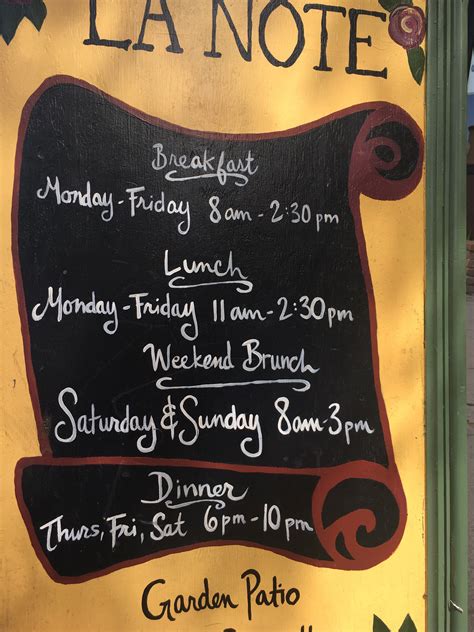 LA NOTE
Breakfast
Monday-Friday 8am-2:30pm
Lunch
Monday-Friday 11am-2:30pm
Weekend Brunch
Saturday & Sunday 8am-3pm
Dinner
Thurs, Fri, Sat 6pm-10pm
Garden Patio